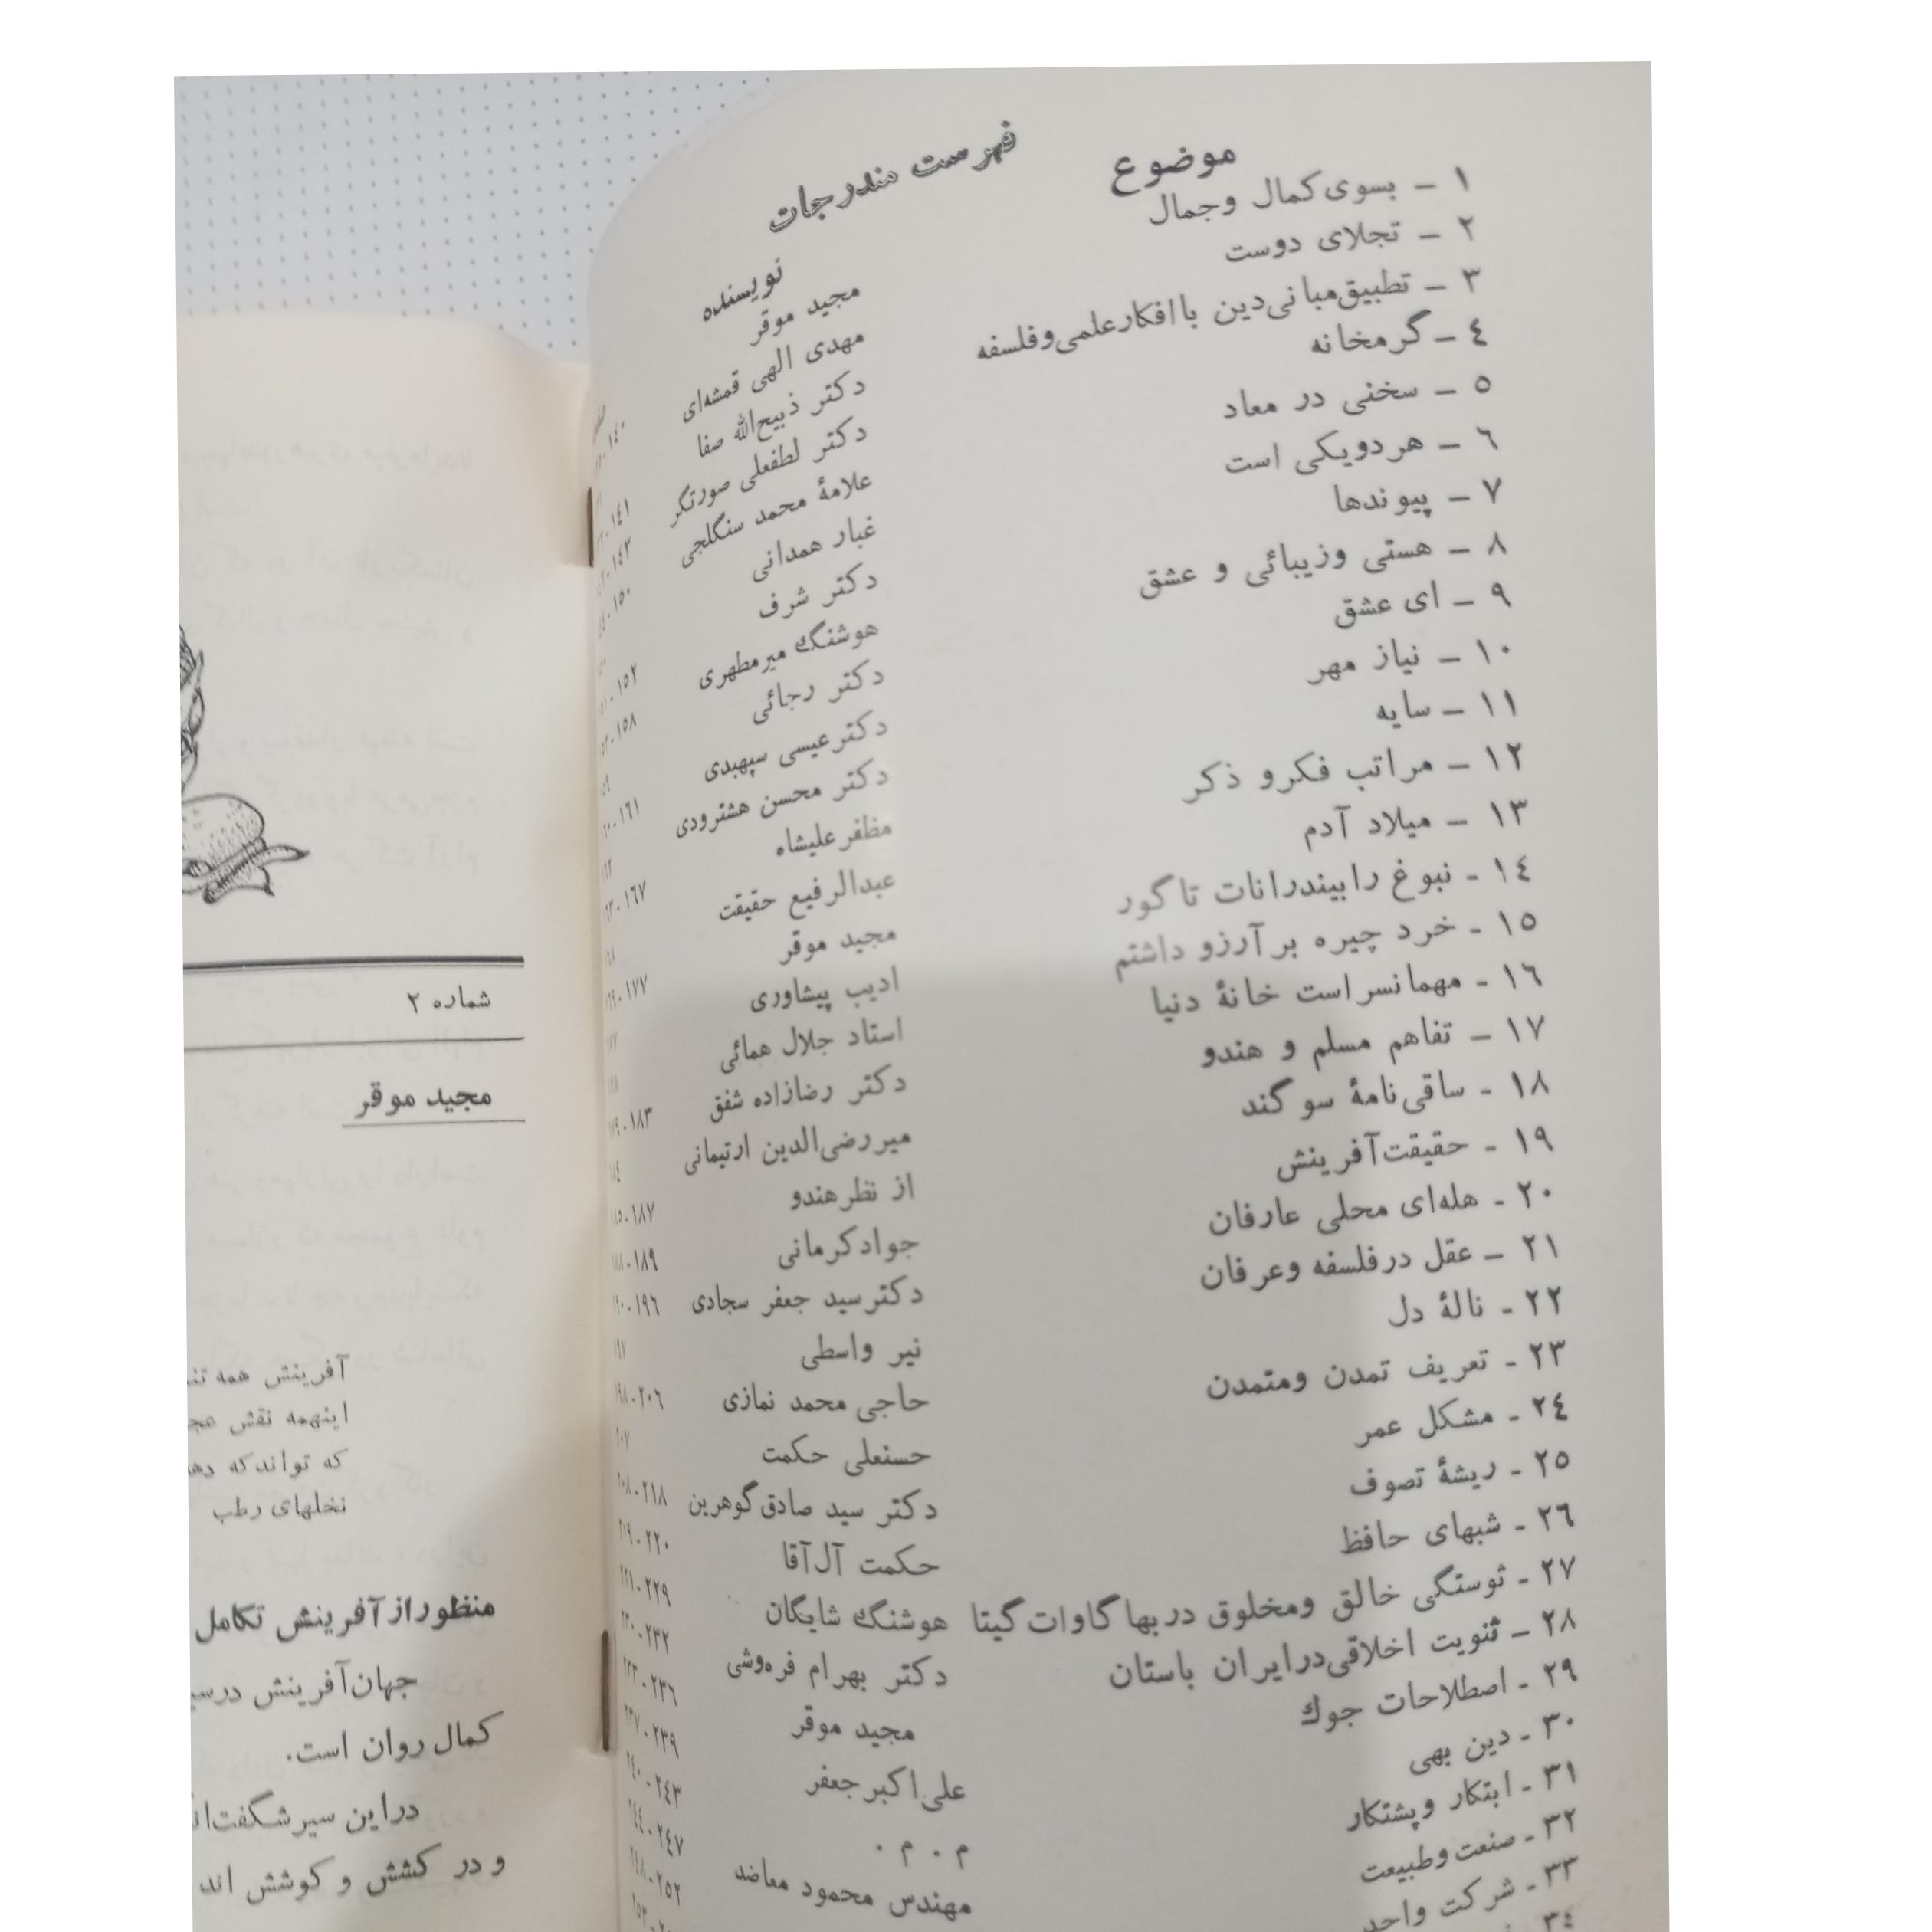 فهرست مندرجات
موضوع
نویسنده
۱ – بسوی کمال وجمال
مجید موقر
۲ – تجلای دوست
مهدی الهی قمشه‌ای
۳ – تطبیق مبانی دین با افکار علمی و فلسفه
دکتر ذبیح‌الله صفا
٤ – گرمخانه
دکتر لطفعلی صورتگر
٥ – سخنی در معاد
علامهٔ محمد سنگلجی
٦ – هر دو یکی است
غبار همدانی
۷ – پیوندها
دکتر شرف
۸ – هستی وزیبائی و عشق
هوشنگ میرمطهری
۹ – ای عشق
دکتر رجائی
۱۰ – نیاز مهر
دکتر عیسی سپهبدی
۱۱ – سایه
دکتر محسن هشترودی
۱۲ – مراتب فکر و ذکر
مظفر علیشاه
۱۳ – میلاد آدم
عبدالرفیع حقیقت
۱٤ - نبوغ رابیندرانات تاگور
مجید موقر
۱٥ - خرد چیره بر آرزو داشتم
ادیب پیشاوری
۱٦ - مهمانسر است خانهٔ دنیا
استاد جلال همائی
۱۷ – تفاهم مسلم و هندو
دکتر رضازاده شفق
۱۸ - ساقی‌نامهٔ سوگند
میر رضی‌الدین ارتیمانی
۱۹ - حقیقت آفرینش
از نظر هندو
۲۰ - هله‌ای محلی عارفان
جواد کرمانی
۲۱ – عقل در فلسفه وعرفان
دکتر سید جعفر سجادی
۲۲ - نالهٔ دل
نیر واسطی
۲۳ - تعریف تمدن ومتمدن
حاجی محمد نمازی
۲٤ - مشکل عمر
حسنعلی حکمت
۲٥ - ریشهٔ تصوف
دکتر سید صادق گوهرین
۲٦ - شبهای حافظ
حکمت آل‌آقا
۲۷ - ثوستگی خالق ومخلوق در بهاگاوات گیتا
هوشنگ شایگان
۲۸ – ثنویت اخلاقی در ایران باستان
دکتر بهرام فره‌وشی
۲۹ - اصطلاحات جوك
مجید موقر
۳۰ - دین بهی
علی اکبر جعفر
۳۱ - ابتکار وپشتکار
م . م .
۳۲ - صنعت وطبیعت
مهندس محمود معاضد
۳۳ - شرکت واحد
۳٤
۱٤۰
۱٤۱
۱٤۳
۱٥۰
۱٥۲
۱٥۸
۱٦۱
۱٦۷
۱۷۷
۱۸۳
۱۸۷
۱۸۹
۱۹٦
۱۹۷
۱۹۸-۲۰٦
۲۰۷
۲۰۸-۲۱۸
۲۱۹-۲۲۰
۲۲۱-۲۲۹
۲۳۰-۲۳۲
۲۳۳-۲۳٦
۲۳۷-۲۳۹
۲٤۰-۲٤۳
۲٤٤-۲٤۷
۲٤۸-۲٥۲
شماره ۲
مجید موقر
آفرینش همه
اینهمه نقش
که تواند که
نخلهای رطب
منظور از آفرینش تکامل
جهان آفرینش
کمال روان است.
در این سیر
و در کشش و کوشش اند